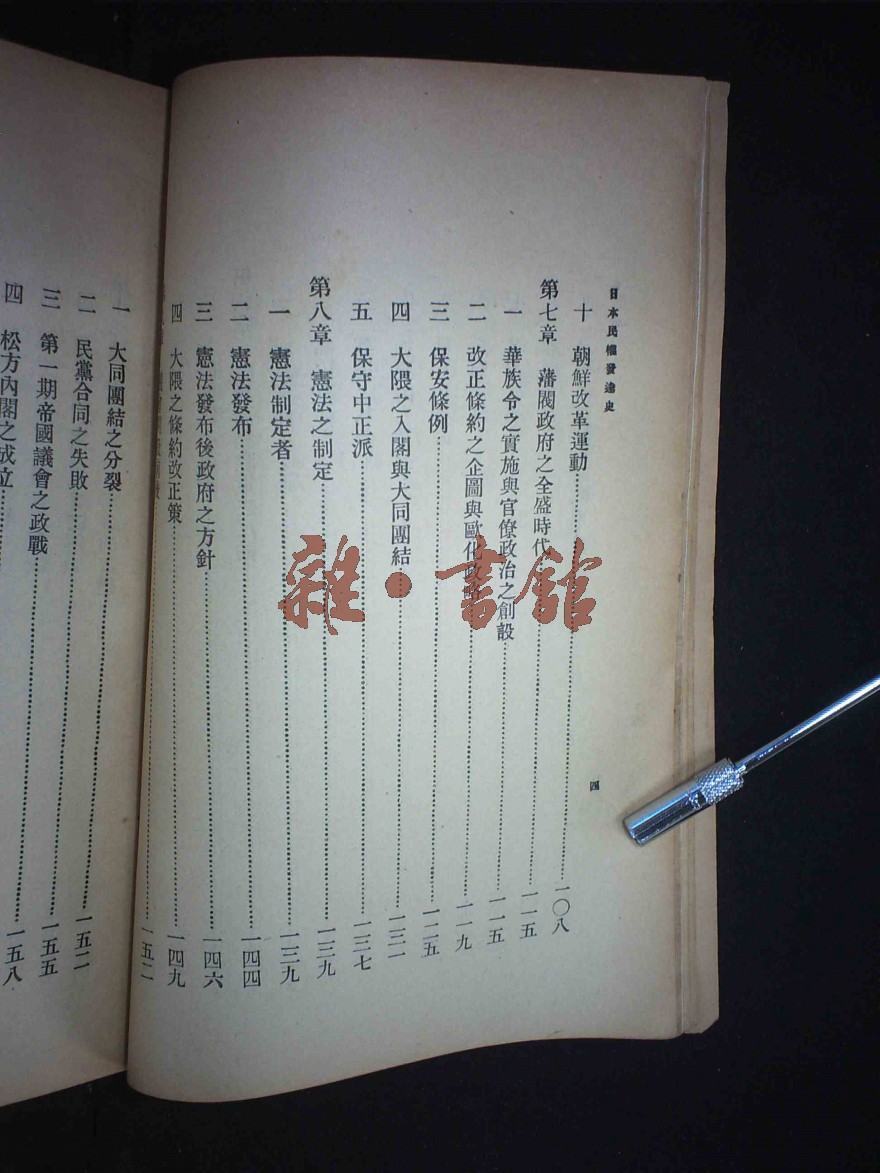 日本民權發達史
四
十 朝鮮改革運動 一〇八
第七章 藩閥政府之全盛時代 一一五
一 華族令之實施與官僚政治之創設 一一五
二 改正條約之企圖與歐化政略 一一九
三 保安條例 一二五
四 大隈之入閣與大同團結 一三一
五 保守中正派 一三七
第八章 憲法之制定 一三九
一 憲法制定者 一三九
二 憲法發布 一四四
三 憲法發布後政府之方針 一四六
四 大隈之條約改正策 一四九
一五二
一 大同團結之分裂
二 民黨合同之失敗 一五二
三 第一期帝國議會之政戰 一五五
四 松方內閣之成立 一五八
雜·書館